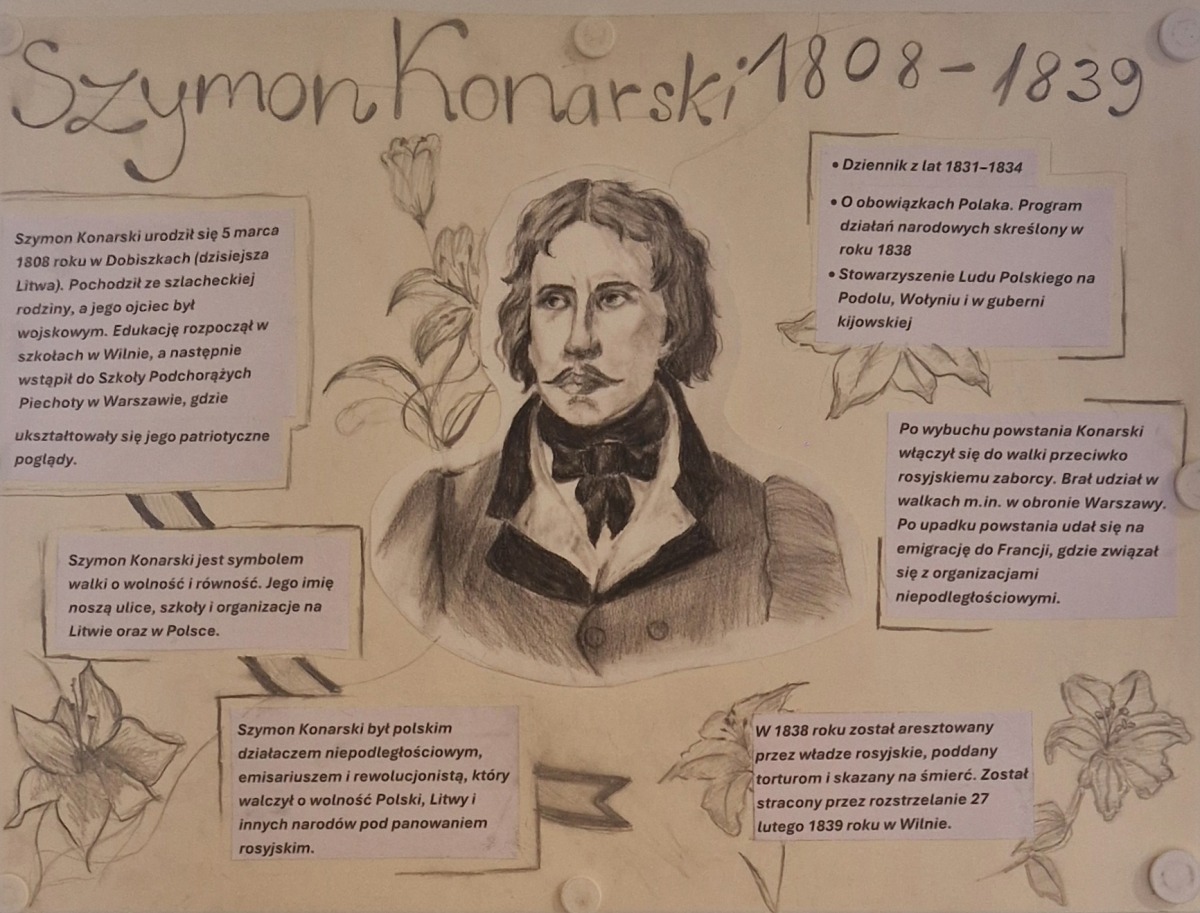 Szymon Konarski 1808-1839
Szymon Konarski urodził się 5 marca
1808 roku w Dobiszkach (dzisiejsza
Litwa). Pochodził ze szlacheckiej
rodziny, a jego ojciec był
wojskowym. Edukację rozpoczął w
szkołach w Wilnie, a następnie
wstąpił do Szkoły Podchorążych
Piechoty w Warszawie, gdzie
ukształtowały się jego patriotyczne
poglądy.
Szymon Konarski jest symbolem
walki o wolność i równość. Jego imię
noszą ulice, szkoły i organizacje na
Litwie oraz w Polsce.
Szymon Konarski był polskim
działaczem niepodległościowym,
emisariuszem i rewolucjonistą, który
walczył o wolność Polski, Litwy i
innych narodów pod panowaniem
rosyjskim.
• Dziennik z lat 1831–1834
• O obowiązkach Polaka. Program
działań narodowych skreślony w
roku 1838
• Stowarzyszenie Ludu Polskiego na
Podolu, Wołyniu i w guberni
kijowskiej
Po wybuchu powstania Konarski
włączył się do walki przeciwko
rosyjskiemu zaborcy. Brał udział w
walkach m.in. w obronie Warszawy.
Po upadku powstania udał się na
emigrację do Francji, gdzie związał
się z organizacjami
niepodległościowymi.
W 1838 roku został aresztowany
przez władze rosyjskie, poddany
torturom i skazany na śmierć. Został
stracony przez rozstrzelanie 27
lutego 1839 roku w Wilnie.